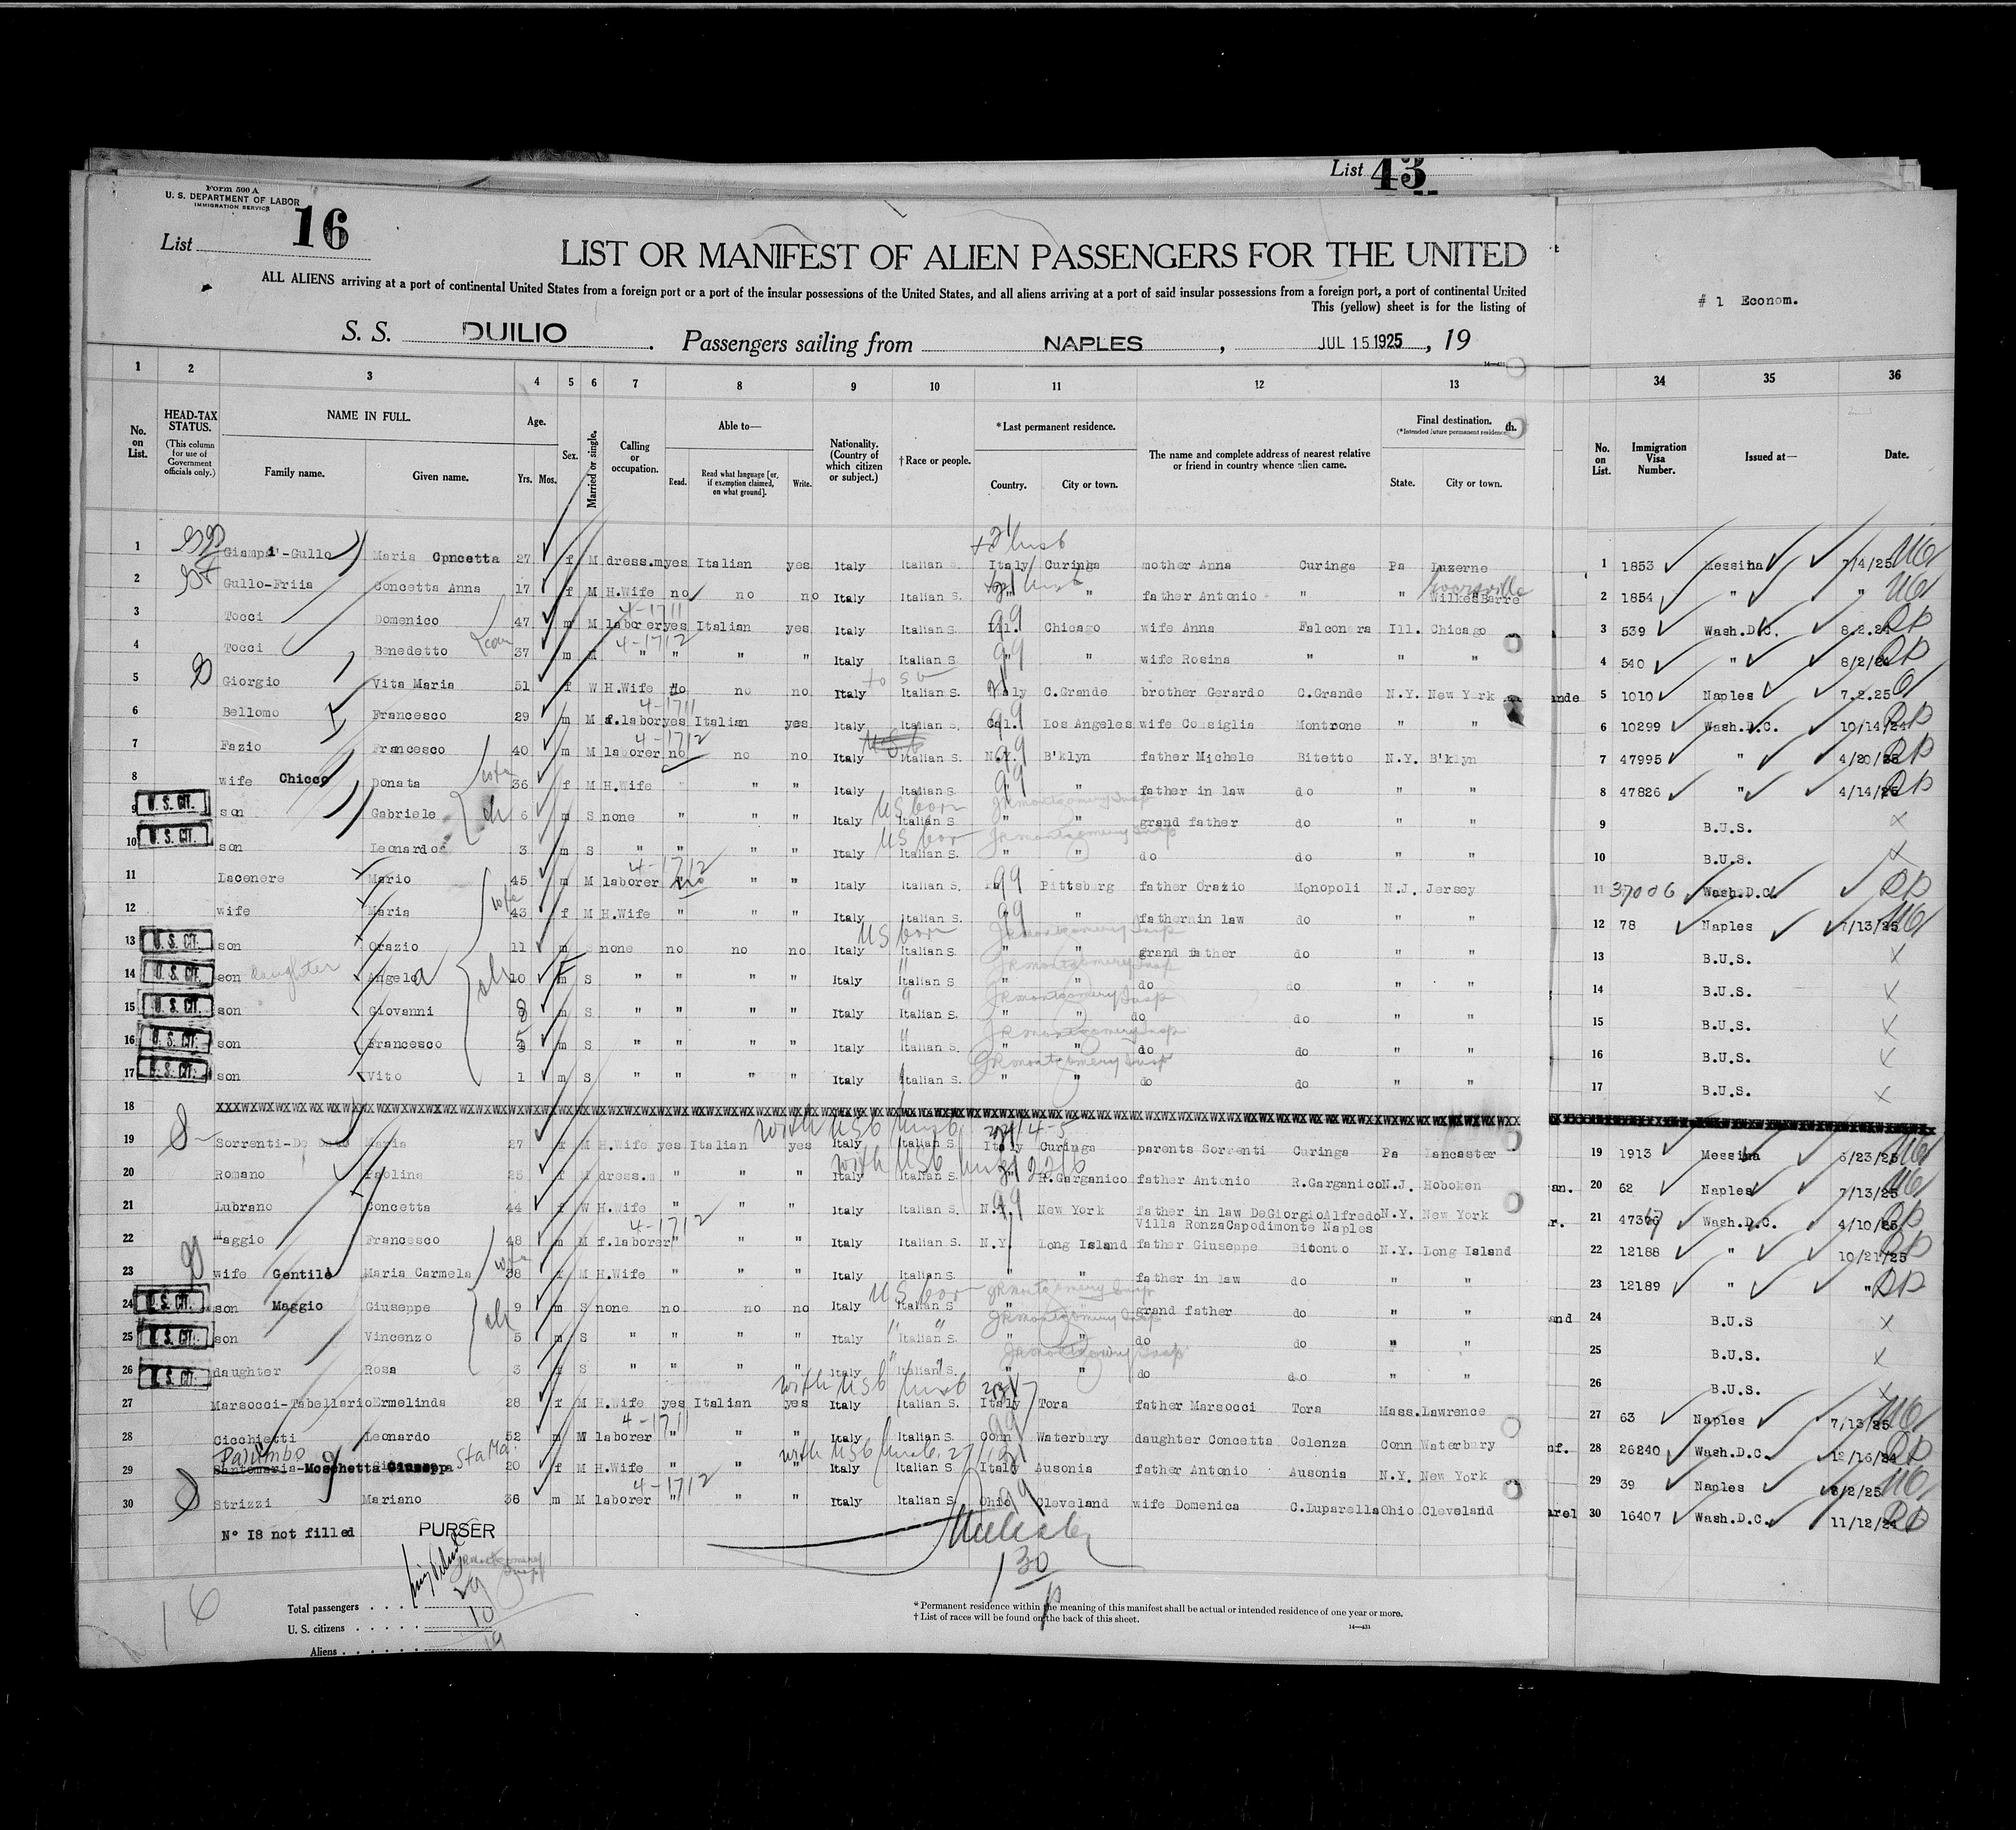 List 43
Form 500 A
U. S. DEPARTMENT OF LABOR
IMMIGRATION SERVICE
List 16
LIST OR MANIFEST OF ALIEN PASSENGERS FOR THE UNITED
ALL ALIENS arriving at a port of continental United States from a foreign port or a port of the insular possessions of the United States, and all aliens arriving at a port of said insular possessions from a foreign port, a port of continental United
This (yellow) sheet is for the listing of
# 1 Econom.
S. S. DUILIO. Passengers sailing from NAPLES, JUL 15 1925, 19
14—431
1 2 3 4 5 6 7 8 9 10 11 12 13 34 35 36
No. on List. HEAD-TAX STATUS. (This column for use of Government officials only.) NAME IN FULL. Family name. Given name. Age. Yrs. Mos. Sex. Married or single. Calling or occupation. Able to— Read. Read what language [or, if exemption claimed, on what ground]. Write. Nationality. (Country of which citizen or subject.) †Race or people. *Last permanent residence. Country. City or town. The name and complete address of nearest relative or friend in country whence alien came. Final destination. (*Intended future permanent residence) State. City or town. No. on List. Immigration Visa Number. Issued at— Date.
1 Giampa'-Gullo Maria Cpncetta 27 f M dress.m yes Italian yes Italy Italian S. Italy Curinga mother Anna Curinga Pa Luzerne 1 1853 Messina 7/4/25
2 Gullo-Friia Concetta Anna 17 f M H.Wife no no no Italy Italian S. " " father Antonio " " WilkesBarre 2 1854 " "
4-1711
3 Tocci Domenico 47 m M laborer yes Italian yes Italy Italian S. Ill. Chicago wife Anna Falconara Ill. Chicago 3 539 Wash.D.C. 8.2.24
4-1712
4 Tocci Benedetto 37 m M " " " " Italy Italian S " " wife Rosina " " " 4 540 " 8/2/24
5 Giorgio Vita Maria 51 f W H.Wife no no no Italy Italian S. Italy C.Grande brother Gerardo C.Grande N.Y. New York ande 5 1010 Naples 7.2.25
4-1711
6 Bellomo Francesco 29 m M f.labor yes Italian yes Italy Italian S. Cal. Los Angeles wife Consiglia Montrone " " 6 10299 Wash.D.C. 10/14/24
4-1712
7 Fazio Francesco 40 m M laborer no no no Italy Italian S. N.Y. B'klyn father Michele Bitetto N.Y. B'klyn 7 47995 " 4/20/25
8 wife Chicco Donata 36 f M H.Wife " " " Italy Italian S. " " father in law do " " 8 47826 " 4/14/25
9 U. S. CIT. son Gabriele 6 m S none " " " Italy US born Italian S. " " grand father do " " 9 B.U.S.
10 U. S. CIT. son Leonardo 3 m S " " " " Italy US bor Italian S. " " do do " " 10 B.U.S.
4-1712
11 Lacenere Mario 45 m M laborer no " " Italy Italian S. Pittsburg father Orazio Monopoli N.J. Jersey 11 37006 Wash.D.C.
12 wife Maria 43 f M H.Wife " " " Italy Italian S. " " father in law do " " 12 78 Naples 7/13/25
13 U. S. CIT. son Orazio 11 m S none no no no Italy US born Italian S. " " grand father do " " 13 B.U.S.
14 U. S. CIT. son daughter Angela 10 F S " " " " Italy Italian S " " do do " " 14 B.U.S.
15 U. S. CIT. son Giovanni 8 m S " " " " Italy Italian S. " " do do " " 15 B.U.S.
16 U. S. CIT. son Francesco 5 m S " " " " Italy Italian S. " " do do " " 16 B.U.S.
17 U. S. CIT. son Vito 1 m S " " " " Italy Italian S. " " do do " " 17 B.U.S.
18
with USC husb
19 Sorrenti-De Maria 27 f M H.Wife yes Italian yes Italy Italian S. Italy Curinga parents Sorrenti Curinga Pa Lancaster 19 1913 Messina 6/23/25
with USC husb
20 Romano Paolina 25 f M dress.m " " " Italy Italian S. " R.Garganico father Antonio R.Garganico N.J. Hoboken an. 20 62 Naples 7/13/25
21 Lubrano Concetta 44 f W H.Wife " " " Italy Italian S. N.Y. New York father in law DeGiorgioAlfredo N.Y. New York r. 21 Wash.D.C. 4/10/25
Villa RonzaCapodimonte Naples
4-1712
22 Maggio Francesco 48 m M f.laborer " " " Italy Italian S. N.Y. Long Island father Giuseppe Bitonto N.Y. Long Island 22 12188 " 10/21/25
23 wife Gentile Maria Carmela 38 f M H.Wife " " " Italy Italian S. " " father in law do " " 23 12189 " "
24 U. S. CIT. son Maggio Giuseppe 9 m S none no no no Italy US bor Italian S " " grand father do " " and 24 B.U.S
25 U. S. CIT. son Vincenzo 5 m S " " " " Italy Italian S. " " do do " " 25 B.U.S.
26 U. S. CIT. daughter Rosa 3 f S " " " " Italy Italian S. " " do do " " 26 B.U.S.
with USC husb
27 Marsocci-Tabellario Ermelinda 28 f M H.Wife yes Italian yes Italy Italian S. Italy Tora father Marsocci Tora Mass. Lawrence 27 63 Naples 7/13/25
4-1711
28 Cicchietti Leonardo 52 m M laborer " " " Italy Italian S. Conn Waterbury daughter Concetta Celenza Conn Waterbury nf. 28 26240 Wash.D.C. 12/16/24
Palumbo
29 Santomaria-Moschetta Giuseppa 20 f M H.Wife " " " Italy Italian S Italy Ausonia father Antonio Ausonia N.Y. New York 29 39 Naples 6/2/25
4-1712
30 Strizzi Mariano 36 m M laborer " " " Italy Italian S. Ohio Cleveland wife Domenica C.Luparella Ohio Cleveland arel 30 16407 Wash.D.C. 11/12/24
N° I8 not filled PURSER
130
16
Total passengers . . . . 29
U. S. citizens . . . . . . 10
Aliens . . . . . . 19
* Permanent residence within the meaning of this manifest shall be actual or intended residence of one year or more.
† List of races will be found on the back of this sheet.
14—431